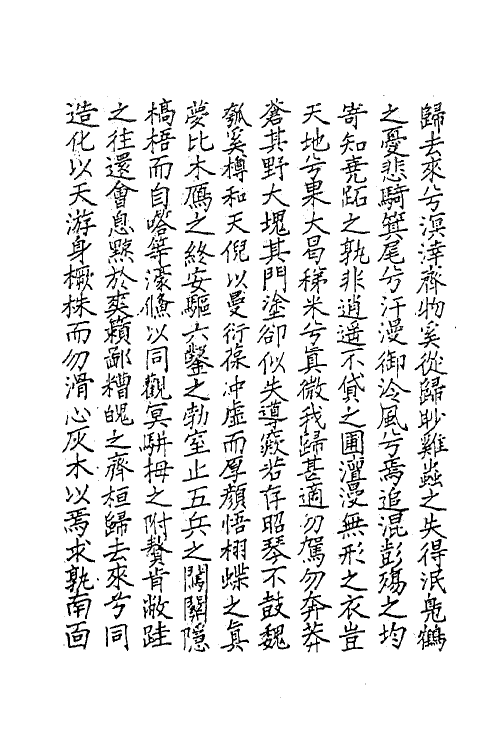 歸去來兮溟涬齊物奚從歸眇雞蟲之失得泯鳧鶴
之憂悲騎箕尾兮汗漫御泠風兮焉追混彭殤之均
寄知堯跖之孰非逍遥不貸之圃澶漫無形之衣豈
天地兮果大曷稊米兮眞微我歸甚適勿駕勿奔莽
蒼其野大塊其門塗卻似失導窾若存昭琴不鼓魏
瓠奚樽和天倪以曼衍葆冲虛而厚顏悟栩蝶之眞
夢比木鴈之終安驅六鑿之勃室止五兵之閗關隱
槁梧而自㗳等濠鯈以同觀冥駢拇之附贅肯敝跬
之往還會息黥於爽籟鄙糟魄之齊桓歸去來兮同
造化以天游身橛株而勿滑心灰木以焉求孰南面